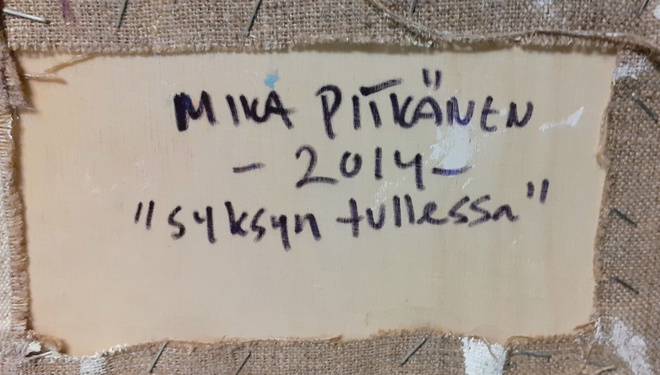 MIKA PITKÄNEN
- 2014 -
"syksyn tullessa"